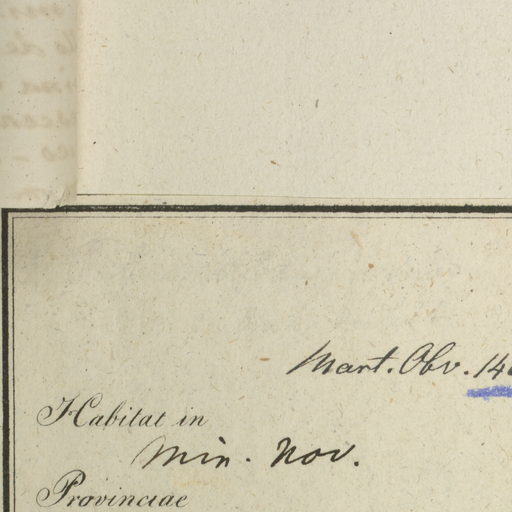 Mart. Obv. 14
Habitat in
Min. Nov.
Provinciae